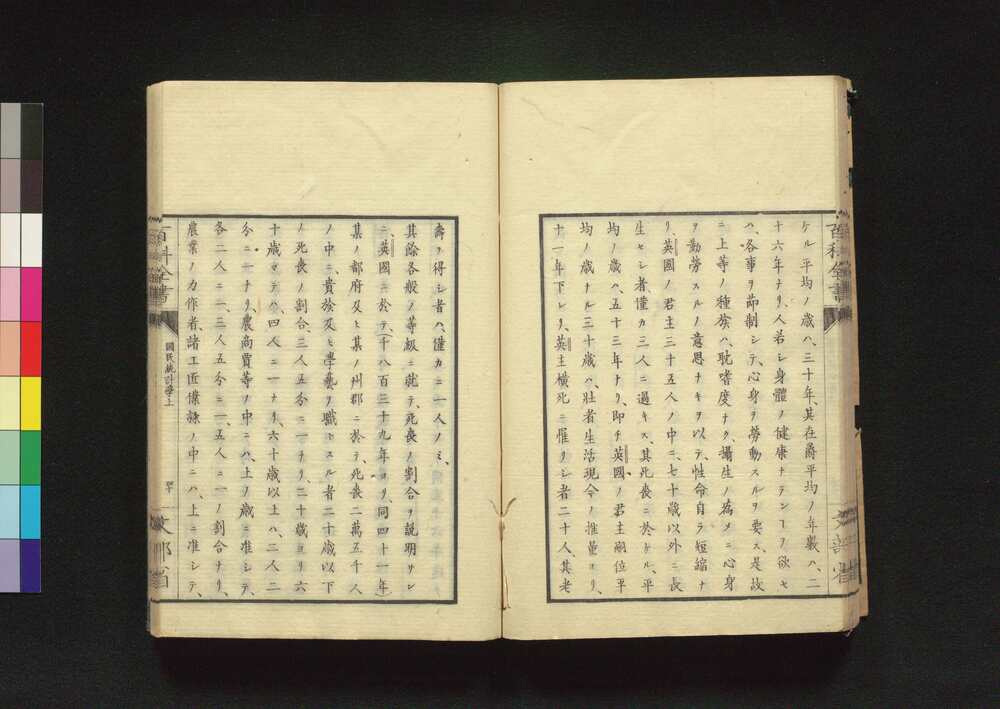 ケル平均ノ歳ハ、三十年、其在爵平均ノ年數ハ、二
十六年ナリ、人若シ身體ノ健康ナランヿヲ欲セ
ハ、各事ヲ節制シテ、心身ヲ勞動スルヲ要ス、是故
ニ上等ノ種族ハ、耽嗜度ナク、攝生ノ為メニ心身
ヲ動勞スルノ意思ナキヲ以テ、性命自ラ短縮ナ
リ、英國ノ君主三十五人ノ中ニ、七十歳以外ニ長
生セシ者、僅カ三人ニ過キス、其死喪ニ於ケル、平
均ノ歳ハ、五十三年ナリ、即チ英國ノ君主嗣位平
均ノ歳ナル三十歳ハ、壯者生活現今ノ推量ヨリ、
十一年下レリ、英主横死ニ罹リシ者二十人、其老
壽ヲ得シ者ハ、僅カニ一人ノミ、
其餘各般ノ等級ニ就テ、死喪ノ割合ヲ説明セン
ニ、英國ニ於テ、(千八百三十九年ヨリ、同四十一年)
某ノ都府及ヒ某ノ州郡ニ於テ、死喪二萬五千人
ノ中ニ、貴族及ヒ學藝ヲ職トスル者二十歳以下
ノ死喪ノ割合、三人五分ニ一ナリ、二十歳ヨリ六
十歳マテハ、四人ニ一ナリ、六十歳以上ハ、二人二
分ニ一ナリ、農商賈等ノ中ニハ、上ノ歳ニ准シテ、
各二人ニ一、三人五分ニ一、五人ニ一ノ割合ナリ、
農業ノ力作者、諸工匠僕隷ノ中ニハ、上ニ准シテ、
百科全書
國民統計學上
文部省
百科全書
文部省